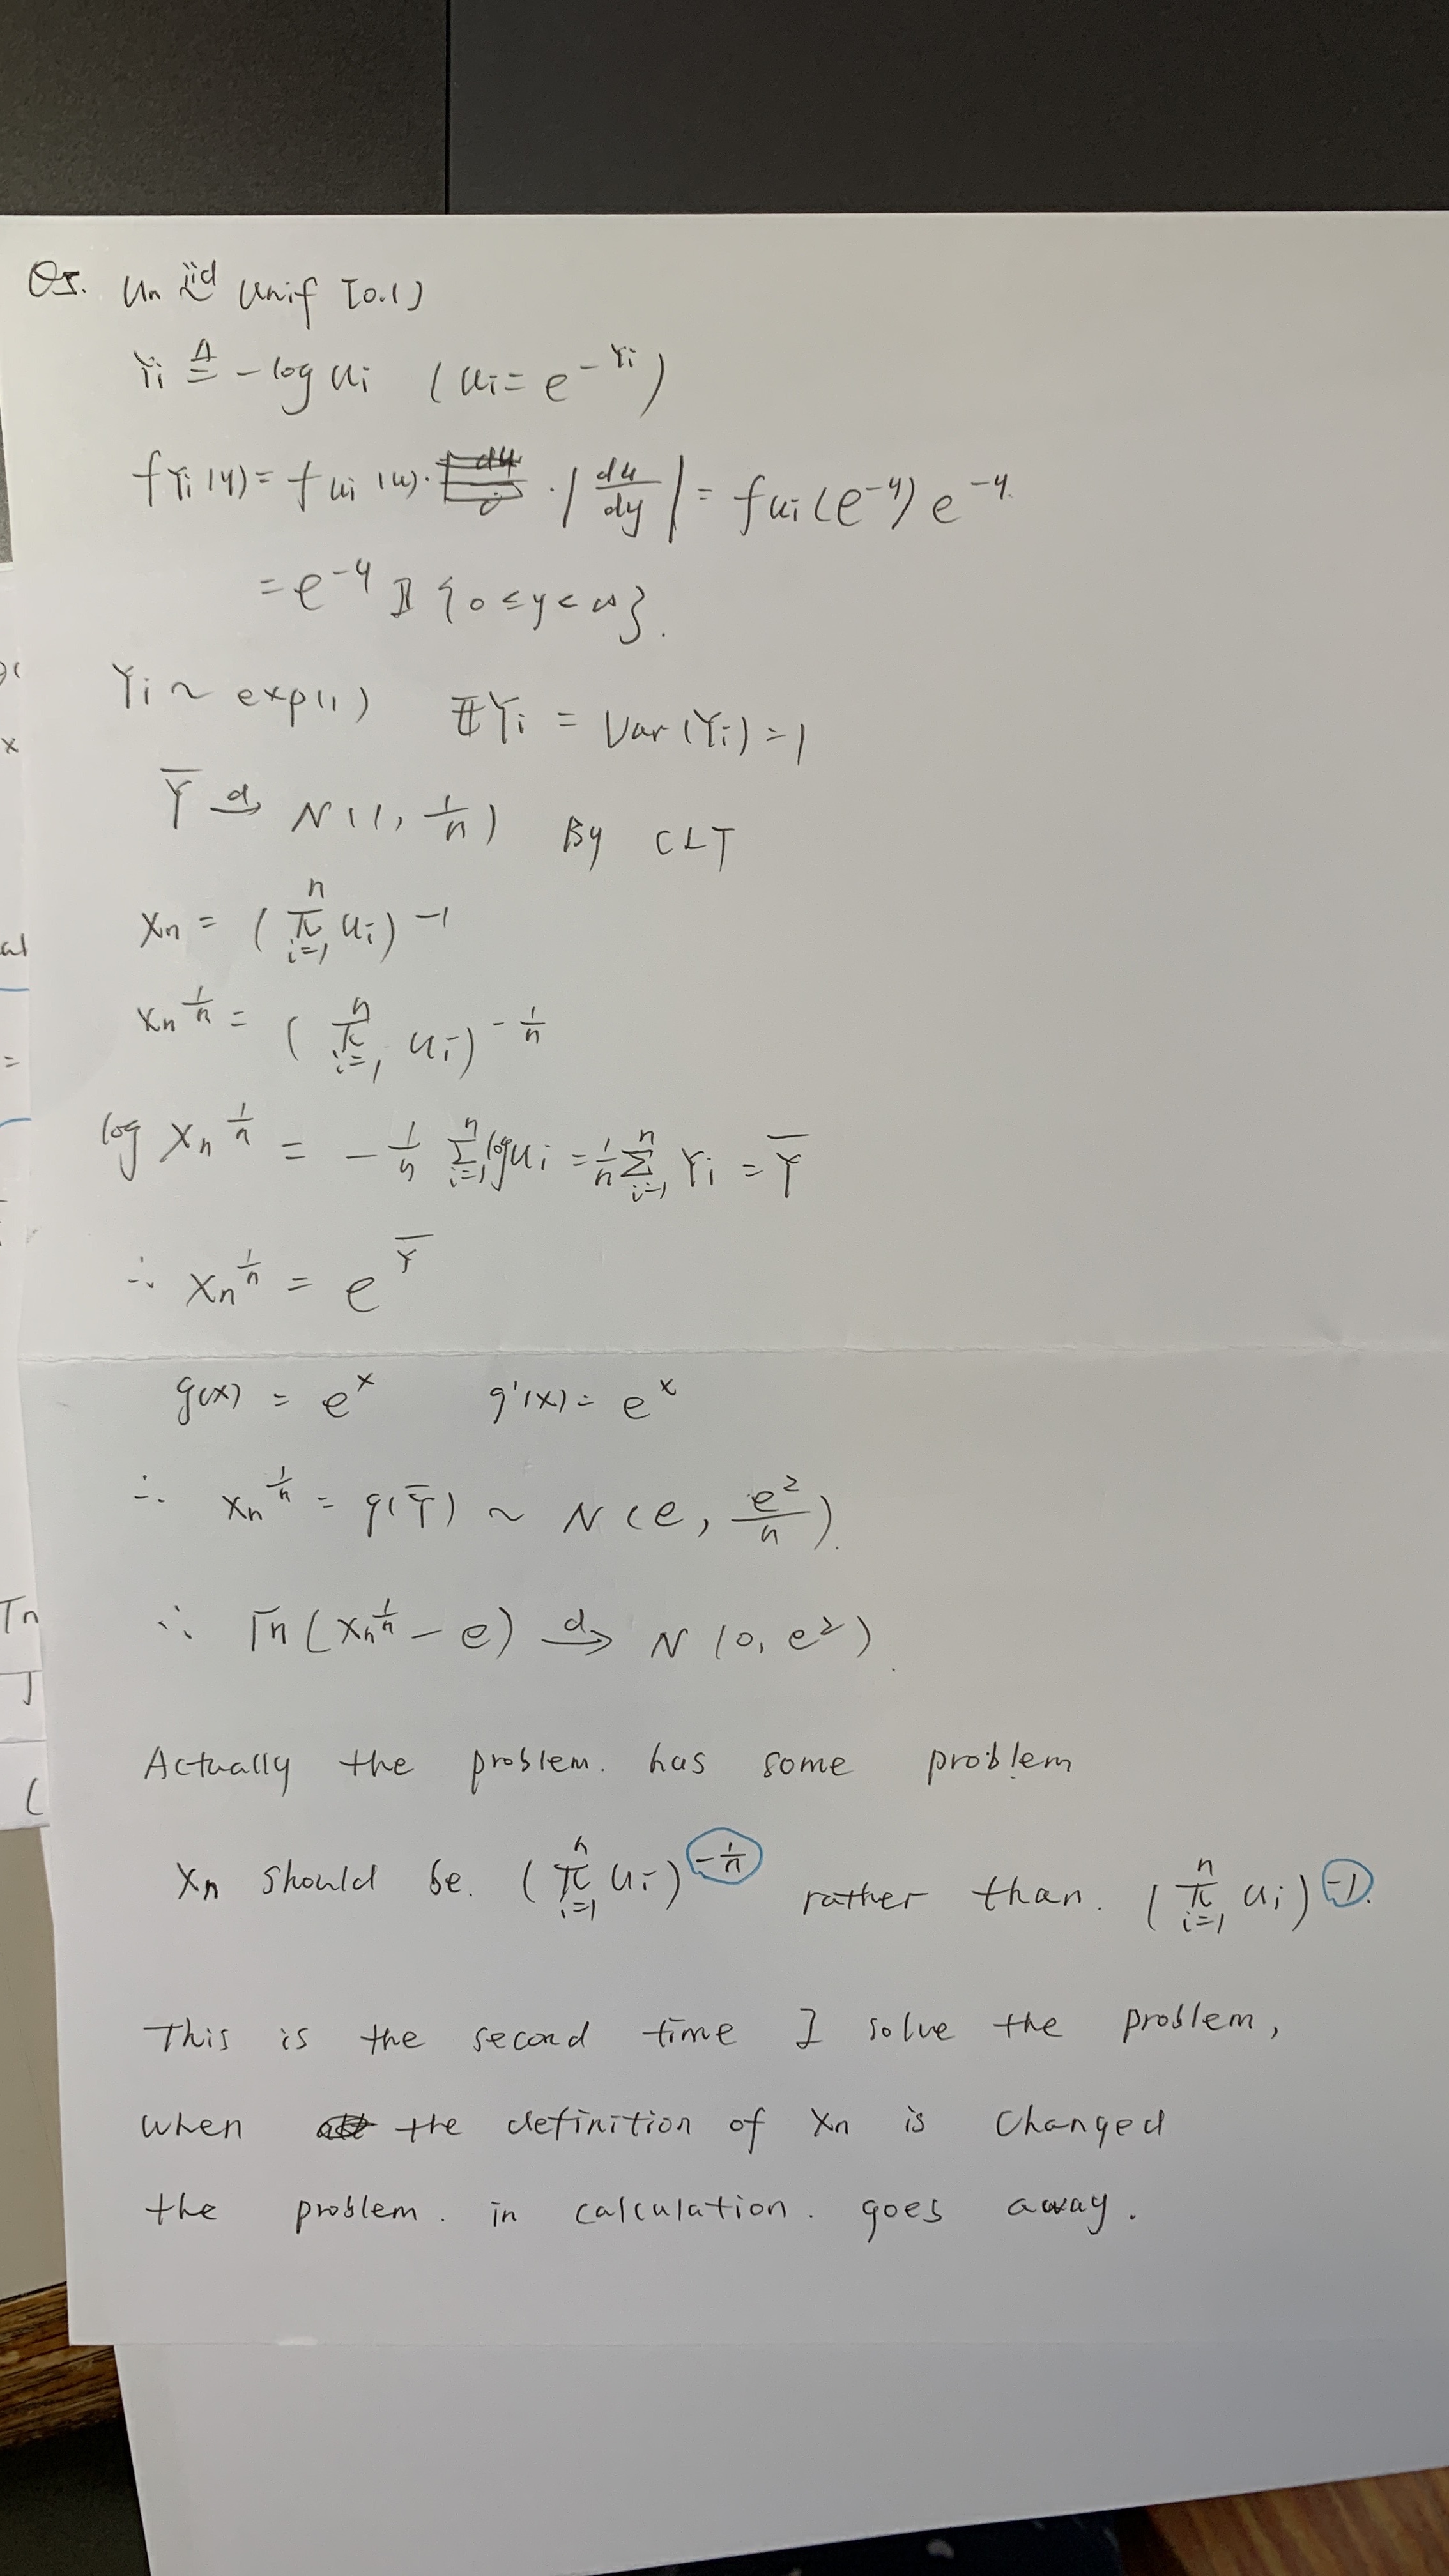 Q5. Un iid~ Unif [0.1)
Yi ≜ -log Ui (Ui = e^{-Yi})
fYi(y) = fUi(u)· · |du/dy| = fUi(e^{-y}) e^{-y}.
= e^{-y} 𝟙 {0 ≤ y < ∞}.
Yi ~ exp(1) EYi = Var(Yi) = 1
Ȳ →d N(1, 1/n) By CLT
Xn = (∏_{i=1}^{n} Ui)^{-1}
Xn^{1/n} = (∏_{i=1}^{n} Ui)^{-1/n}
log Xn^{1/n} = -1/n ∑_{i=1}^{n} log Ui = 1/n ∑_{i=1}^{n} Yi = Ȳ
∴ Xn^{1/n} = e^{Ȳ}
g(x) = e^x g'(x) = e^x
∴ Xn^{1/n} = g(Ȳ) ~ N(e, e²/n).
∴ √n (Xn^{1/n} - e) →d N(0, e²).
Actually the problem. has some problem
Xn should be. (∏_{i=1}^{n} Ui)^{-1/n} rather than. (∏_{i=1}^{n} Ui)^{-1}.
This is the second time I solve the problem,
when the definition of Xn is changed
the problem. in calculation. goes away.